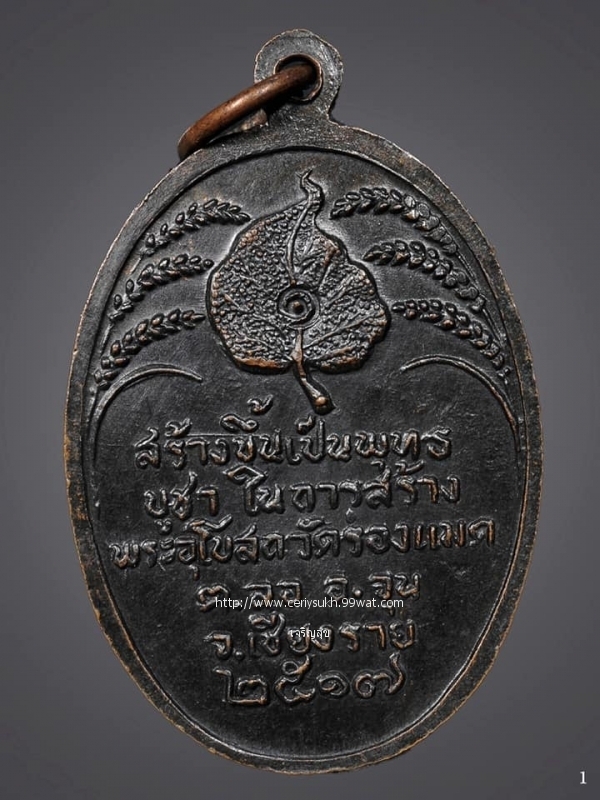 สร้างขึ้นเป็นพุทธ
บูชา ในการสร้าง
พระอุโบสถวัดร่องแมด
ต.ลอ อ.จุน
http://www.ceriysukh.99wat.com
จ.เชียงราย
เจริญสุข
๒๕๑๗
1